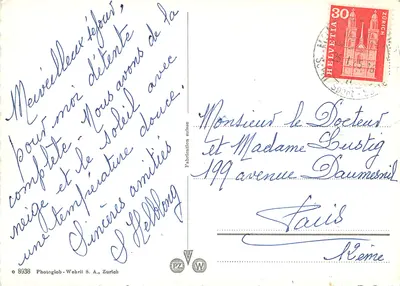 Merveilleux séjour,
pour moi détente
complète - Nous avons de la
neige et le soleil avec
une température douce.
Sincères amitiés
S Helblong
Fabrication suisse
e 8938 Photoglob-Wehrli S. A., Zurich
PZ W
30
HELVETIA
ZÜRICH
Monsieur le Docteur
et Madame Lustig
199 avenue Daumesnil
Paris
12ème